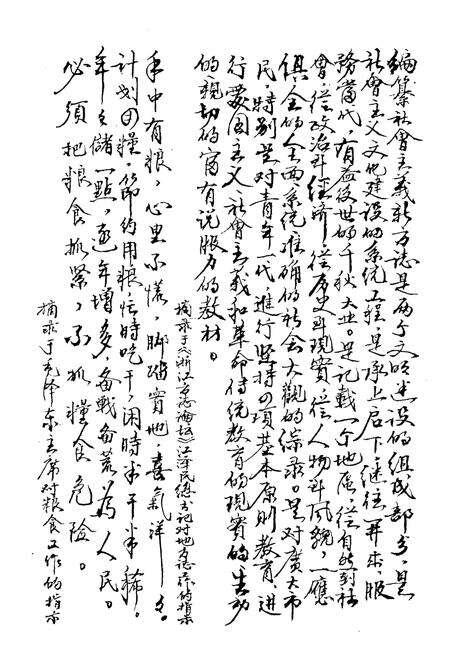 编纂社會主義新方志是两个文明建设的组成部分，是
社會主义文化建设的系统工程，是承上启下继往开来、服
務當代，有益後世的千秋大业。是记载一个地區，從自然到社
會，從政治到经济，從历史到现實，從人物到风貌，一應
俱全的全面系统准确的社会大觀的综录。是对廣大市
民，特别是对青年一代，進行坚持四项基本原则教育，進
行爱国主义社會主義和革命传统教育的现實的生动
的親切的富有说服力的教材。
摘录于《浙江方志論坛》江泽民總书记对地方志工作的指示
手中有粮，心里不慌，脚踏實地，喜氣洋々。
计划用糧，節约用粮，忙時吃干，闲時半干半稀。
年々儲一點，逐年增多，备战备荒为人民。
必须把粮食抓紧，不抓糧食危险。
摘录于毛泽东主席对粮食工作的指示